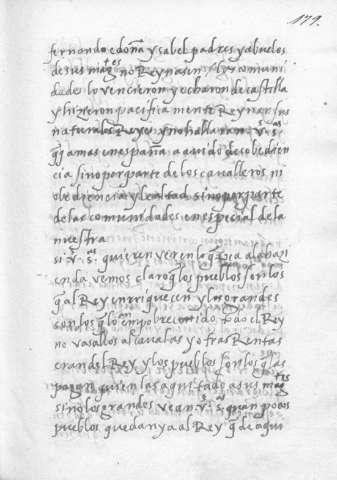 179.
fernando e doña ysabel padres y abuelos
de sus magtes no Reynasen y las comuni
dades lo vencieron y echaron de castilla
y hizieron pacificamente Reynar sus
naturales Reyes y no hallaran vs. ss.
q jamas en españa a auido desobedien
cia sino por parte de los caualleros ni
obediencia y lealtad sino por parte
de las comunidades en especial de la
nuestra
si vs. ss. quieren ver en la alaban
enda vemos claro q los pueblos son los
q al Rey enrriquecen y los grandes
son los q lo an empobrecido todo el Rey
no vasallos alcaualas y otras Rentas
eran del Rey y los pueblos son los q las
pagan quien las a quitado a sus magtes
sino los grandes vean vs. ss. quan pocos
pueblos quedan ya al Rey q de aqui